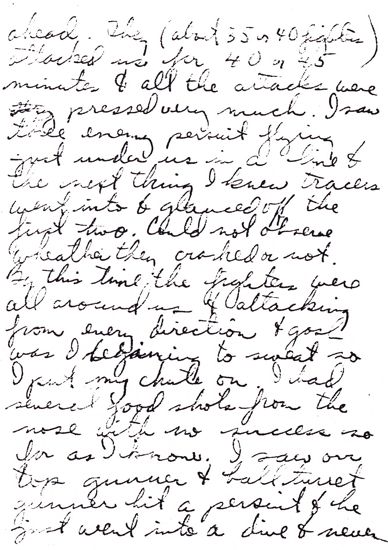 ahead. They (about 35 or 40 fighters)
attacked us for 40 or 45
minutes & all the attacks were
pressed very much. I saw
three enemy persuit flying
just under us in a line &
the next thing I knew tracers
went into & glanced off the
first two. Could not observe
wheather they crashed or not.
By this time the fighters were
all around us & attacking
from every direction & gosh
was I beginning to sweat so
I put my chute on. I had
several good shots from the
nose with no success so
far as I know. I saw our
top gunner & ball turret
gunner hit a persuit & he
just went into a dive & never